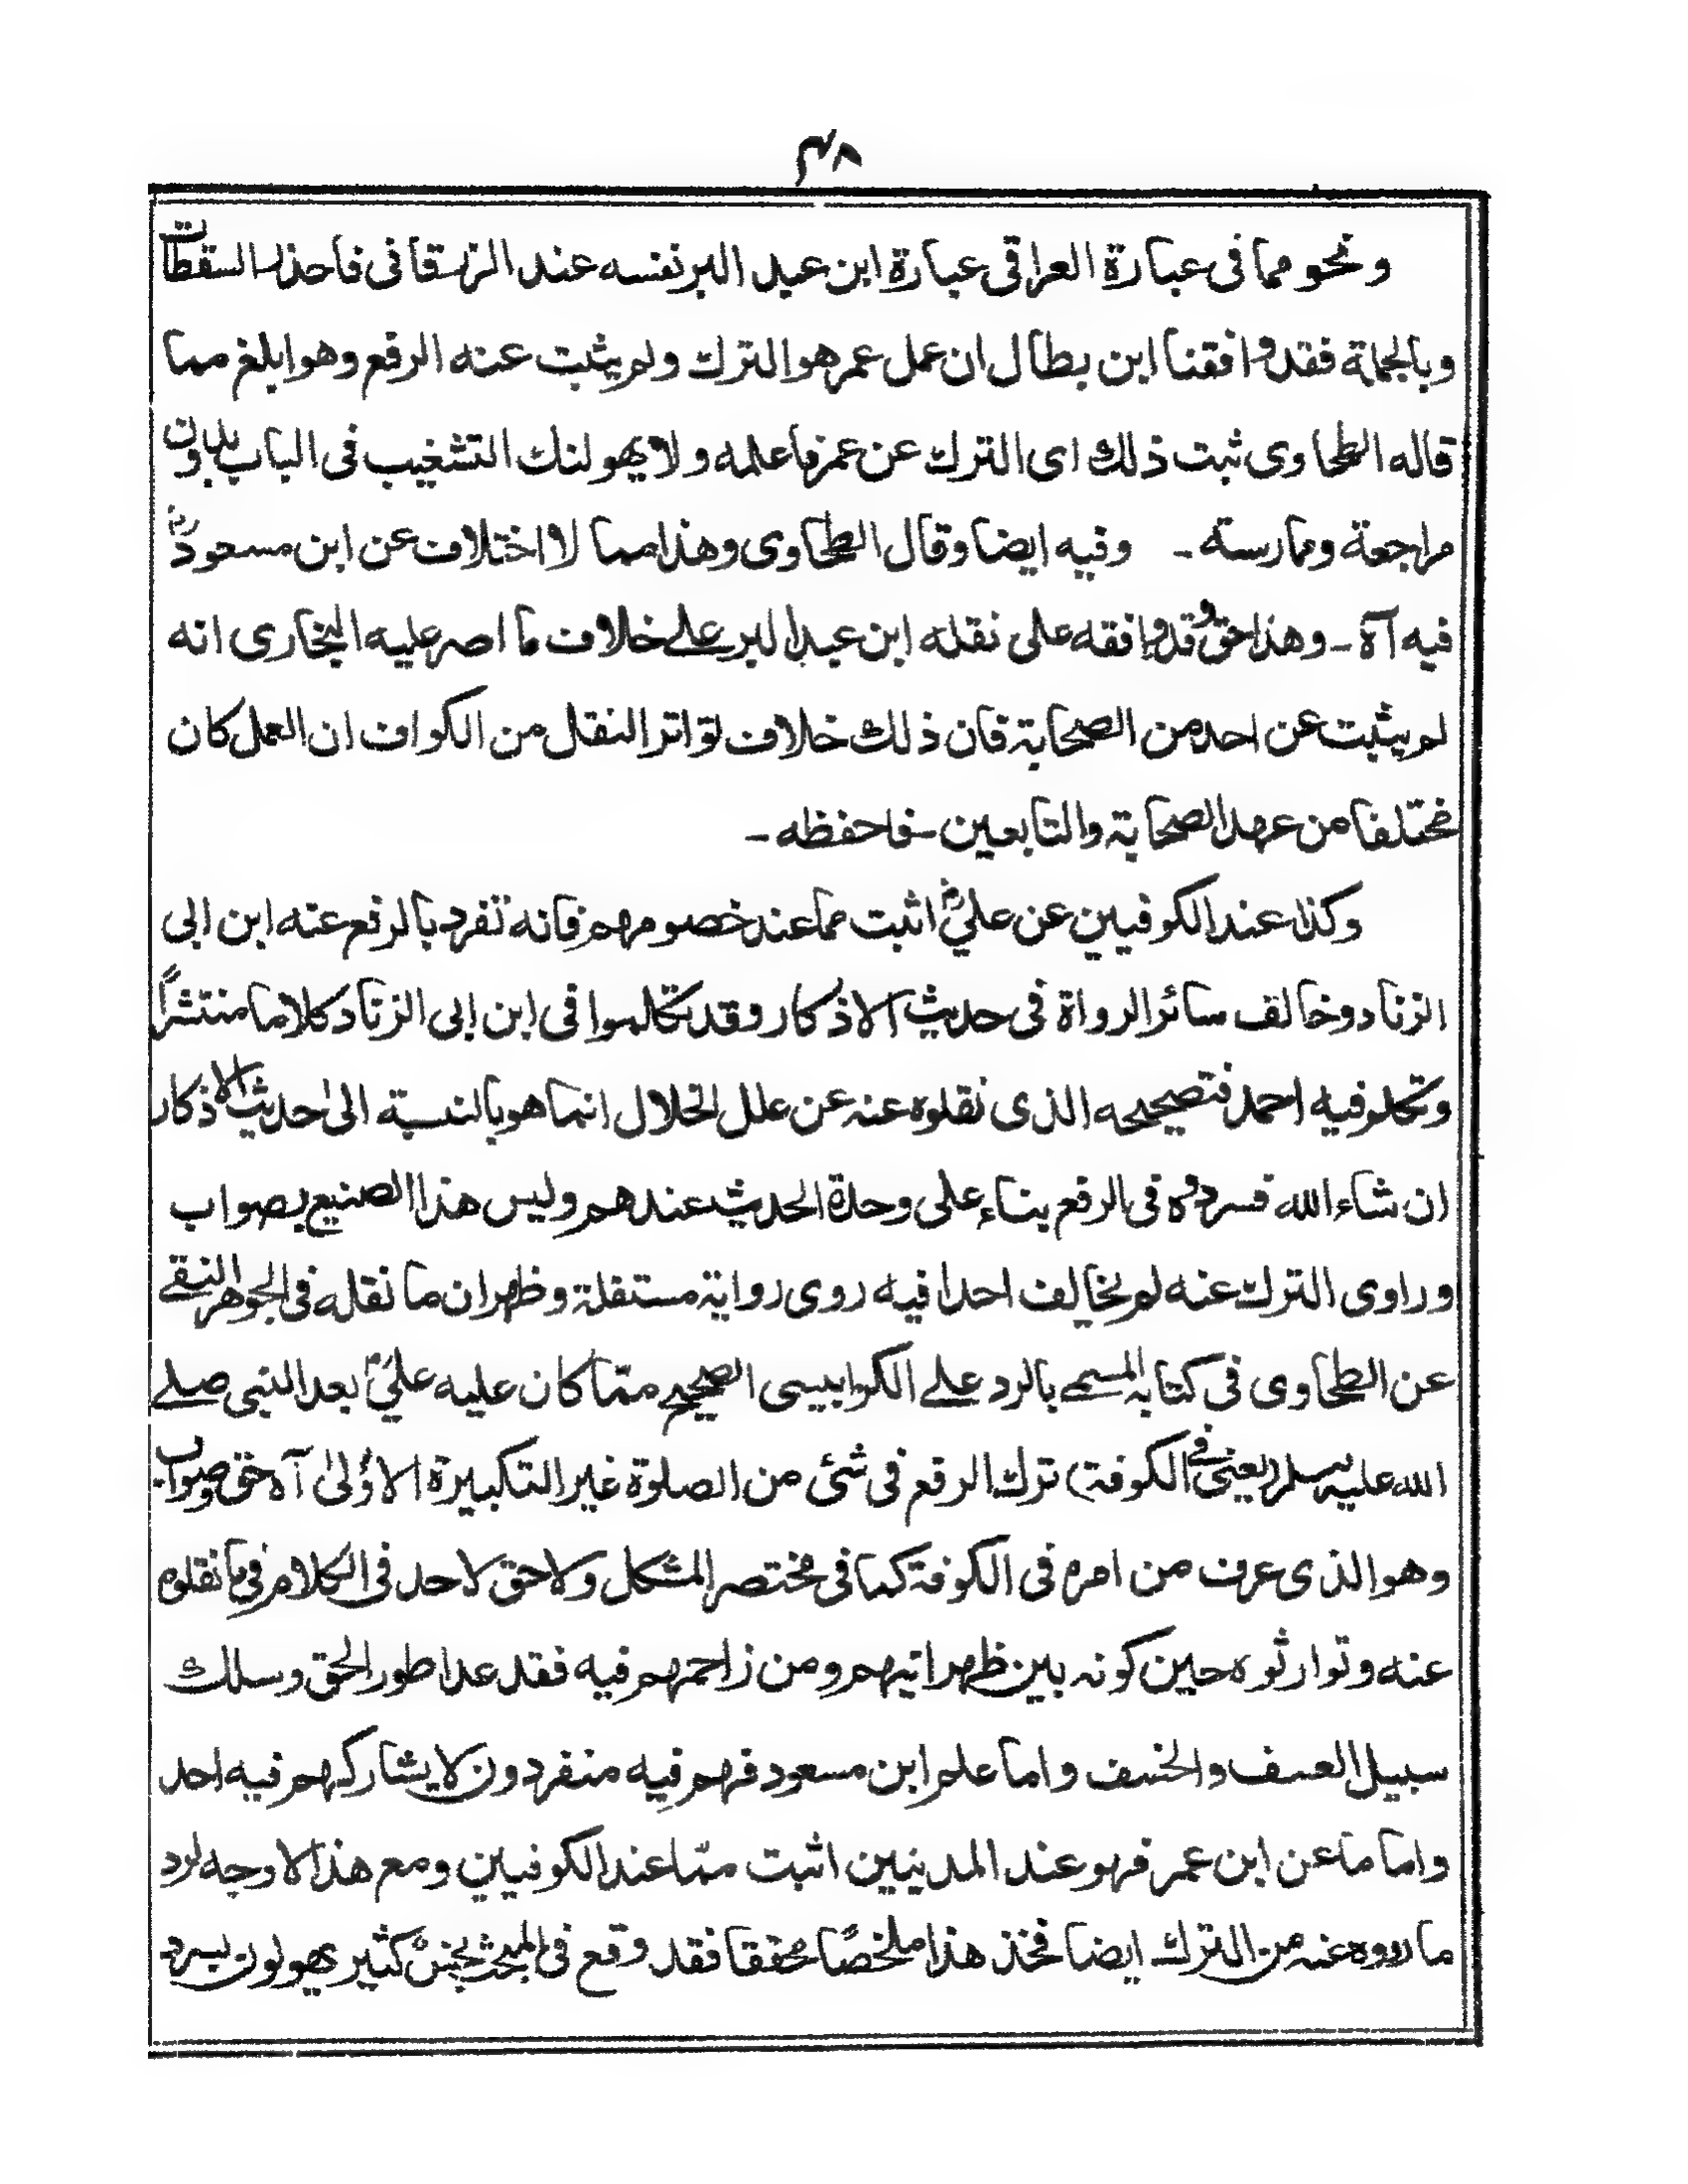 ٣٨
ونحو مما فى عبارة العراقى عبارة ابن عبد البر نفسه عند الزرقانى فاحذر السقطات
وبالجملة فقد وافقنا ابن بطال ان عمل عمر هو الترك ولم يثبت عنه الرفع وهو ابلغ مما
قاله الطحاوى ثبت ذلك اى الترك عن عمر فاعلمه ولا يهولنك التشغيب فى الباب بدون
مراجعة وممارسة - وفيه ايضا وقال الطحاوى وهذا مما لا اختلاف عن ابن مسعودؓ
فيه آه - وهذا حق وقد وافقه على نقله ابن عبد البر علے خلاف ما اصر عليه البخارى انه
لم يثبت عن احد من الصحابة فان ذلك خلاف تواتر النقل من الكواف ان العمل كان
مختلفا من عهد الصحابة والتابعين - فاحفظه -
وكذا عند الكوفيين عن عليؓ اثبت مما عند خصومهم فانه تفرد بالرفع عنه ابن ابى
الزناد وخالف سائر الرواة فى حديث الاذكار وقد تكلموا فى ابن ابى الزناد كلاما منتشراً
وتكلم فيه احمد فتصحيحه الذى نقلوه عنه عن علل الخلال انما هو بالنسبة الى حديث الاذكار
ان شاء الله فسردوه فى الرفع بناء على وحدة الحديث عندهم وليس هذا الصنيع بصواب
وراوى الترك عنه لم يخالف احدا فيه روى رواية مستقلة وظهر ان ما نقله فى الجوهر النقے
عن الطحاوى فى كتابه المسمے بالرد علے الكرابيسى الصحيح ممّا كان عليه عليؓ بعد النبى صلے
الله عليه وسلم (يعنى فے الكوفة) ترك الرفع فى شئ من الصلوة غير التكبيرة الاوُلىٰ آه حق وصواب
وهو الذى عرف من امره فى الكوفة كما فى مختصر المشكل ولا حق لاحد فى الكلام فى ما نقلوه
عنه وتوارثوه حين كونه بين ظهرانيهم ومن زاحمهم فيه فقد عدا طور الحق وسلك
سبيل العسف والخسف واما علم ابن مسعود فهم فيه منفردون لا يشاركهم فيه احد
واما ما عن ابن عمر فهو عند المدنيين اثبت ممّا عند الكوفيين ومع هذا لا وجه لرد
ما رووه عنه من الترك ايضا فخذ هذا ملخصًا محققا فقد وقع فى المبحث بخسٌ كثير يهولون بسرد